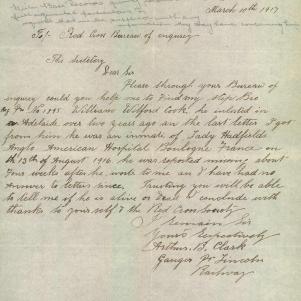 March 10th 1917
To/- Red Cross Bureau of enquiry
The Secretary
Dear Sir
Please through your Bureau of
enquiry could you help me to Find my Step Bro
William Wilford Cook. he enlisted in
Adelaide over two years ago on the last letter I got
from him he was an inmate of Lady Hadfields
Anglo American Hospital Boulogne France on
the 13th of August 1916. he was reported missing about
Four weeks after he wrote to me an I have had no
answer to letters since. Trusting you will be able
to tell me if he is alive or Dead I conclude with
thanks to yourself & the Red Cross Society
I remain Sir
Yours Respectively
Arthur. B. Clark
Ganger Pt Lincoln
Railway